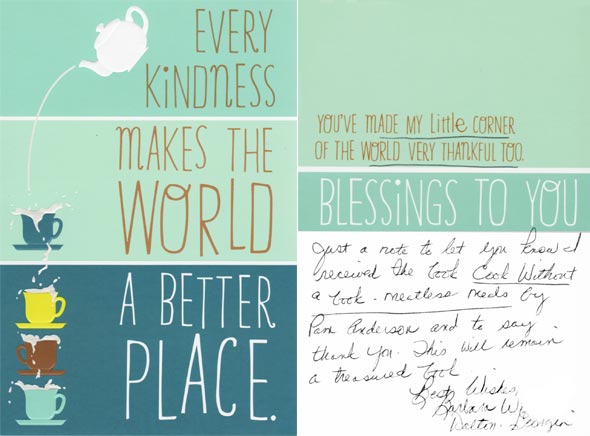 EVERY
KiNDNESS
MAKES THE
WORLD
A BETTER
PLACE.
YOU'VE MADE MY Little CORNER
OF THE WORLD VERY THANKFUL TOO.
BLESSiNGS TO YOU
Just a note to let you know I
received the book Cook Without
a book - meatless meals by
Pam Anderson and to say
thank you. This will remain
a treasured book
Best Wishes,
Barbara W.
Dalton. Georgia